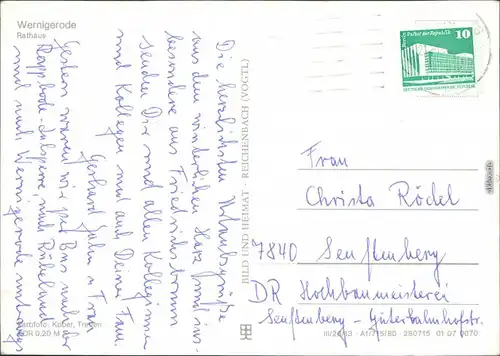 Wernigerode
Rathaus
Die herzlichsten Urlaubsgrüße
aus dem winterlichen Harz und insbesondere aus Friedrichsbrunn
senden Dir und allen Kolleginnen
und Kollegen und auch Deiner Fam.
Gerhard u. Frau
Gestern waren wir per Bus nach der
Rappbode-Talsperre und Rübeland
und nach Wernigerode unterwegs
Berlin Palast der Republik
10
DEUTSCHE DEMOKRATISCHE REPUBLIK
BILD UND HEIMAT · REICHENBACH (VOGTL)
Frau
Christa Rödel
7840 Senftenberg
DR Hochbaumeisterei
Senftenberg - Güterbahnhofstr.
Farbfoto: Kober, Treuen
DDR 0,20 M
III/26/13 · A1/715/80 · 280715 01 07 0070